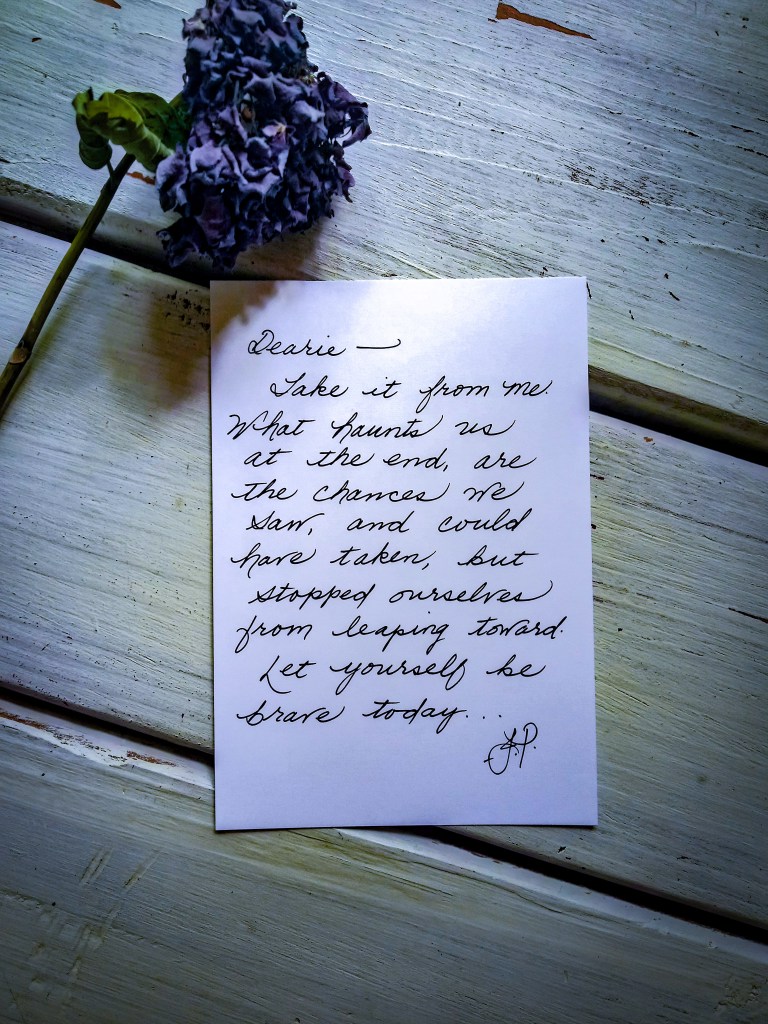 Dearie —
Take it from me.
What haunts us
at the end, are
the chances we
saw, and could
have taken, but
stopped ourselves
from leaping toward.
Let yourself be
brave today...
J.P.